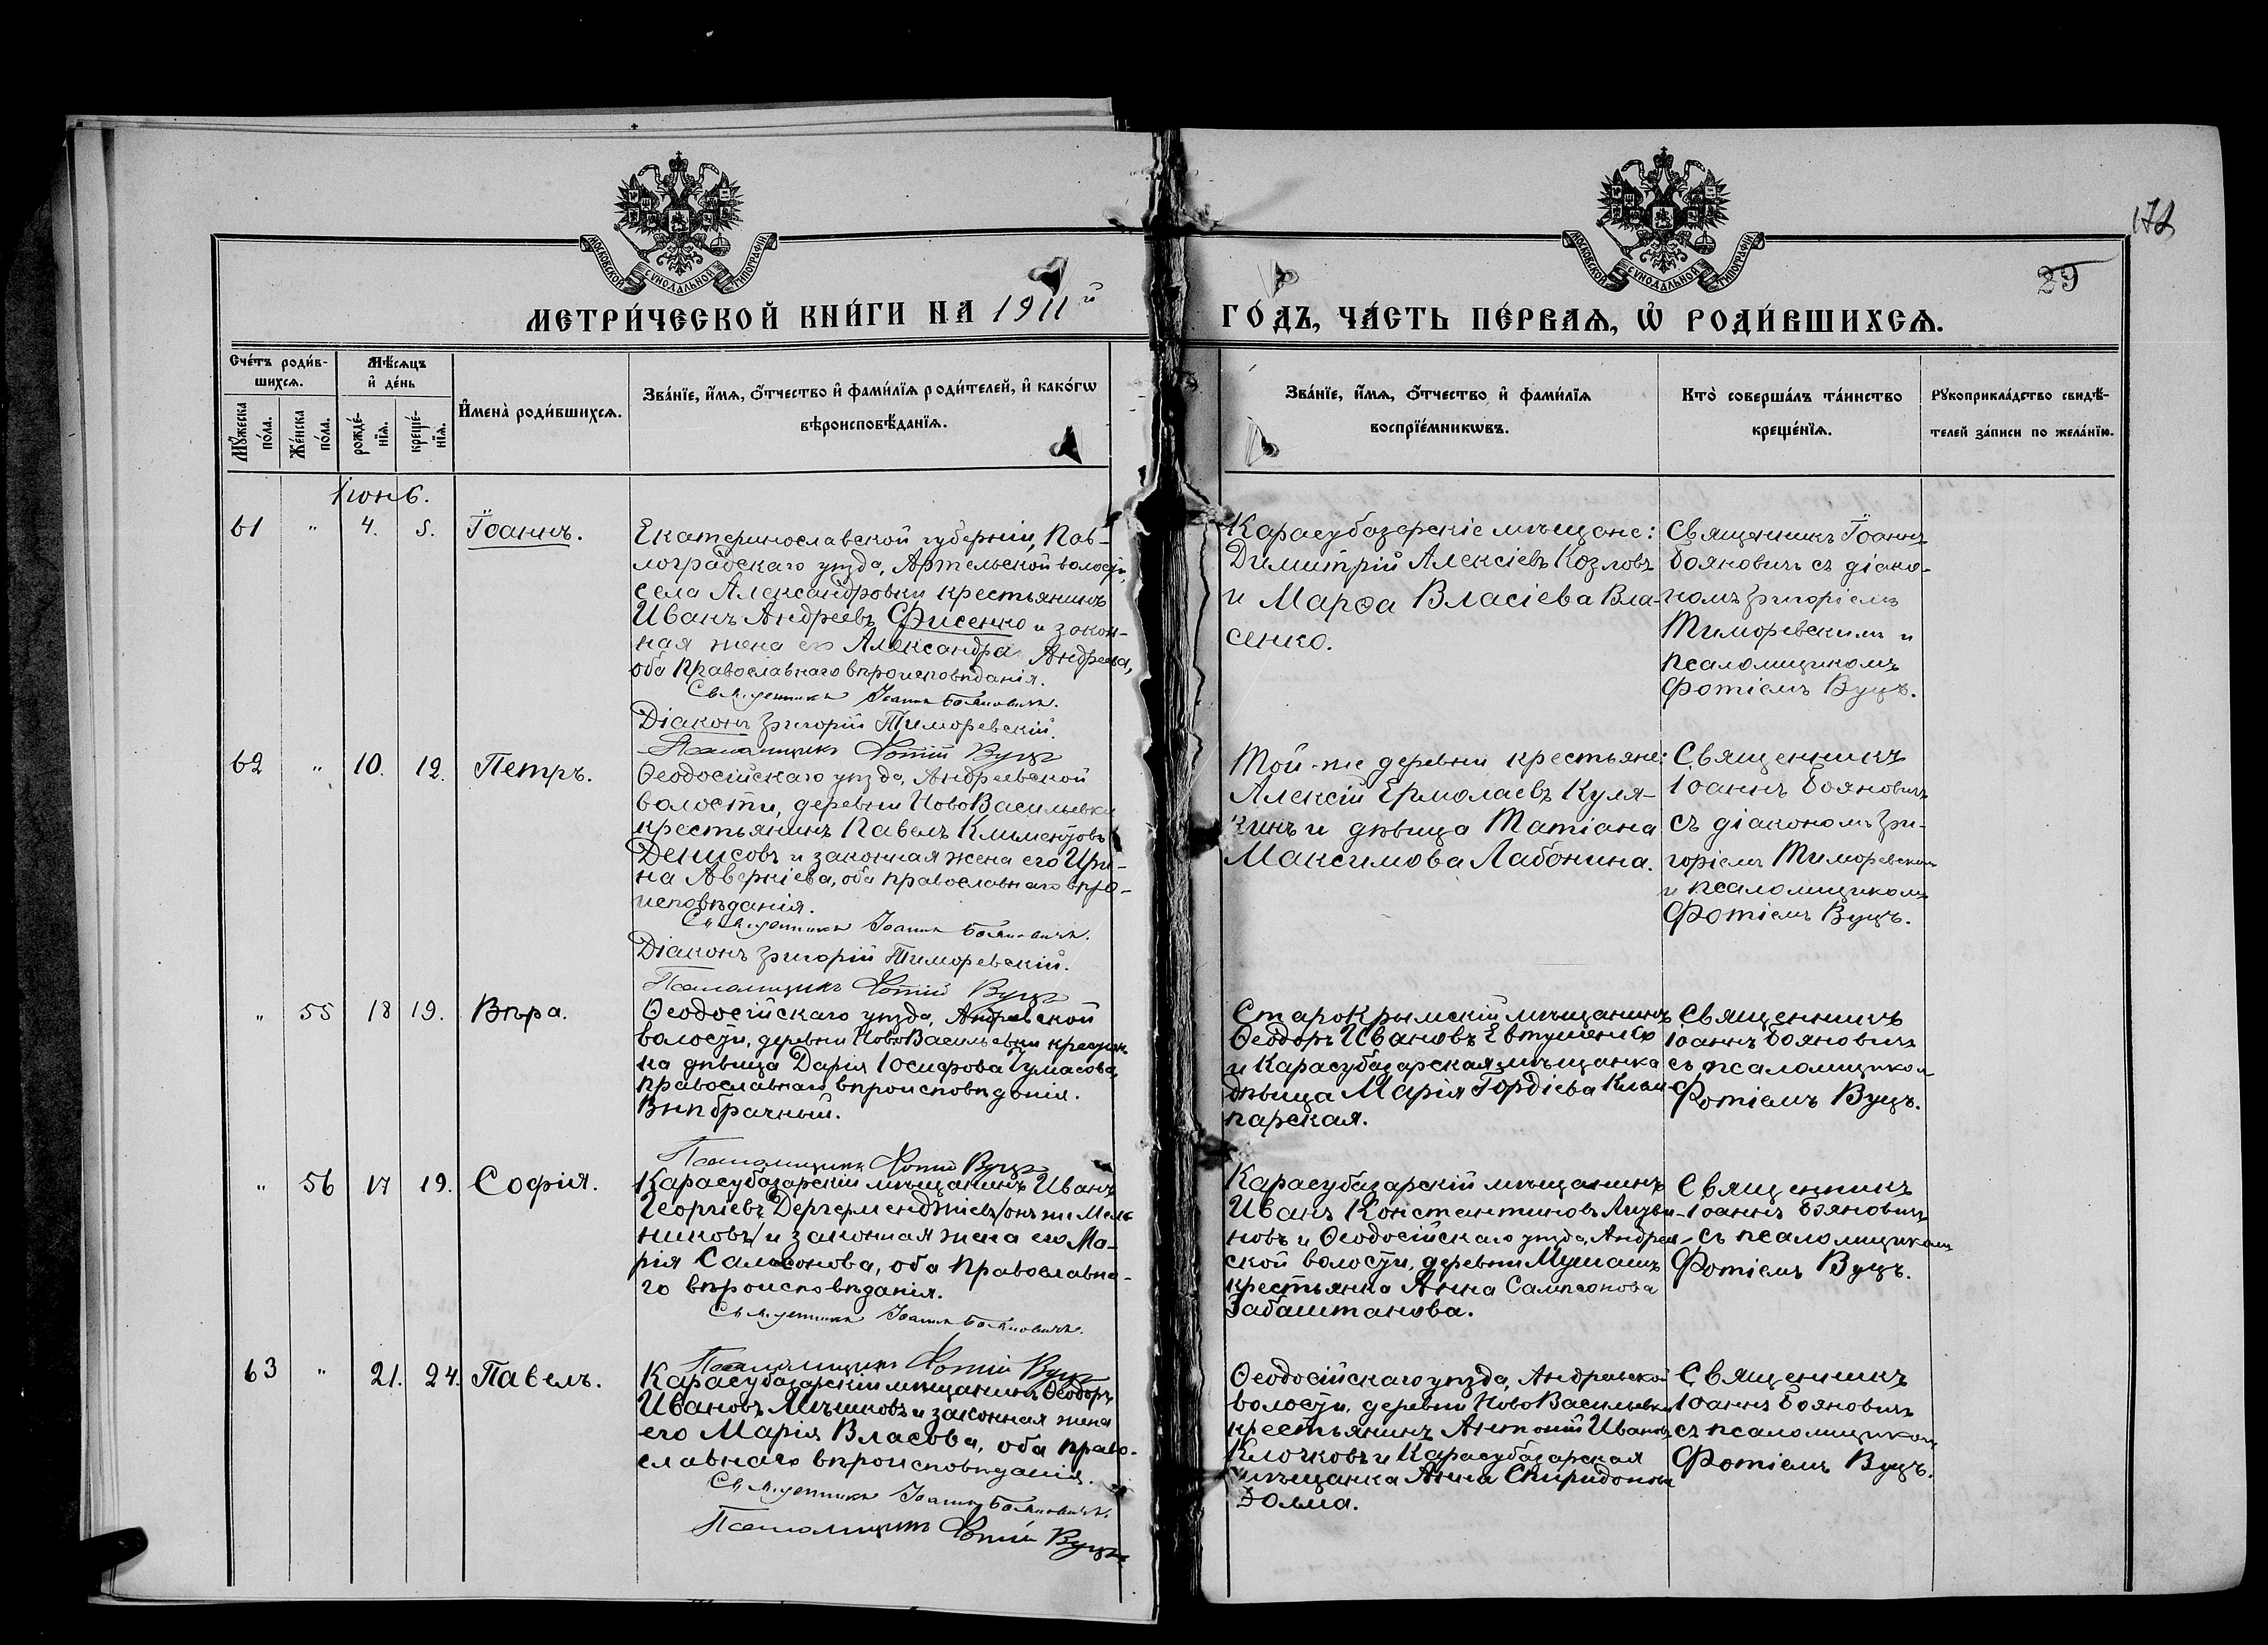 172
29
МОСКОВСКОЙ СѴНОДАЛЬНОЙ ТИПОГРАФІИ
МОСКОВСКОЙ СѴНОДАЛЬНОЙ ТИПОГРАФІИ
МЕТРИ́ЧЕСКОЙ КНИ́ГИ НА 1911й
ГО́ДЪ, ЧА́СТЬ ПЕ́РВАѦ, Ѡ҆ РОДИ́ВШИХСѦ.
Сче́тъ роди́в-
шихсѧ.
Мѣ́сѧцъ
и҆ де́нь
Мꙋ́жеска по́ла.
Же́нска по́ла.
рожде́-
нїѧ.
креще́-
нїѧ.
И҆мена̀ роди́вшихсѧ.
Зва́нїе, и҆́мѧ, ѻ҆́тчество и҆ фами́лїѧ роди́телей, и҆ како́гѡ
вѣроисповѣ́данїѧ.
Зва́нїе, и҆́мѧ, ѻ҆́тчество и҆ фами́лїѧ
воспрїе́мникѡвъ.
Кто̀ соверша́лъ та́инство
креще́нїѧ.
Рꙋкоприкла́дство свидѣ́-
телей за́писи по жела́нїю.
Іюнь.
61 " 4. 5. Іоаннъ.
Екатеринославской губерніи, Пав-
лоградскаго уѣзда, Артельской волости,
села Александровки крестьянинъ
Иванъ Андреевъ Фисенко и закон-
ная жена его Александра Андреева,
оба Православнаго вѣроисповѣданія.
Священникъ Іоаннъ Бояновичъ.
Діаконъ Григорій Тиморевскій.
Псаломщикъ Фотій Вуцъ
Карасубазарскіе мѣщане:
Димитрій Алексіевъ Козловъ
и Марѳа Власіева Вла-
сенко.
Священникъ Іоаннъ
Бояновичъ съ діако-
номъ Григоріемъ
Тиморевскимъ и
псаломщикомъ
Фотіемъ Вуцъ.
62 " 10. 12. Петръ.
Ѳеодосійскаго уѣзда, Андреевской
волости, деревни НовоВасильевки
крестьянинъ Павелъ Климентовъ
Денисовъ и законная жена его Ири-
на Аверкіева, оба православнаго вѣро-
исповѣданія.
Священникъ Іоаннъ Бояновичъ.
Діаконъ Григорій Тиморевскій.
Псаломщикъ Фотій Вуцъ
Той-же деревни крестьяне:
Алексій Ермолаевъ Куля-
кинъ и дѣвица Татіана
Максимова Лабонина.
Священникъ
Іоаннъ Бояновичъ
съ діакономъ Гри-
горіемъ Тиморевскимъ
и псаломщикомъ
Фотіемъ Вуцъ.
" 55 18 19. Вѣра.
Ѳеодосійскаго уѣзда, Андреевской
волости, деревни НовоВасильевки крестьян-
ка дѣвица Дарія Іосифова
православнаго вѣроисповѣданія.
Внѣбрачный.
Псаломщикъ Фотій Вуцъ
СтароКрымскій мѣщанинъ
Ѳеодоръ Ивановъ Евтушенко
и Карасубазарская мѣщанка
дѣвица Марія Гордіева
парская.
Священникъ
Іоаннъ Бояновичъ
съ псаломщиком
Фотіемъ Вуцъ.
" 56 17 19. Софія.
Карасубазарскій мѣщанинъ Иванъ
Георгіевъ Дерчерменджіевъ /онъ же Мель
никовъ/ и законная жена его Ма-
рія Самсонова, оба Православна-
го вѣроисповѣданія.
Священникъ Іоаннъ Бояновичъ.
Псаломщикъ Фотій Вуцъ
Карасубазарскій мѣщанинъ
Иванъ Константиновъ
новъ и Ѳеодосійскаго уѣзда, Андреев-
ской волости, деревни Мушашъ
крестьянка Анна Сампсонова
Забаштанова.
Священникъ
Іоаннъ Бояновичъ
съ псаломщикомъ
Фотіемъ Вуцъ.
63 " 21. 24. Павелъ.
Карасубазарскій мѣщанинъ Ѳеодоръ
Ивановъ Мѣшковъ и законная жена
его Марія Власова, оба право-
славнаго вѣроисповѣданія.
Священникъ Іоаннъ Бояновичъ
Псаломщикъ Фотій Вуцъ
Ѳеодосійскаго уѣзда, Андреевской
волости, деревни НовоВасильевки
крестьянинъ Антоній Ивановъ
Клочковъ и Карасубазарская
мѣщанка Анна Спиридонова
Священникъ
Іоаннъ Бояновичъ
съ псаломщиком
Фотіемъ Вуцъ.